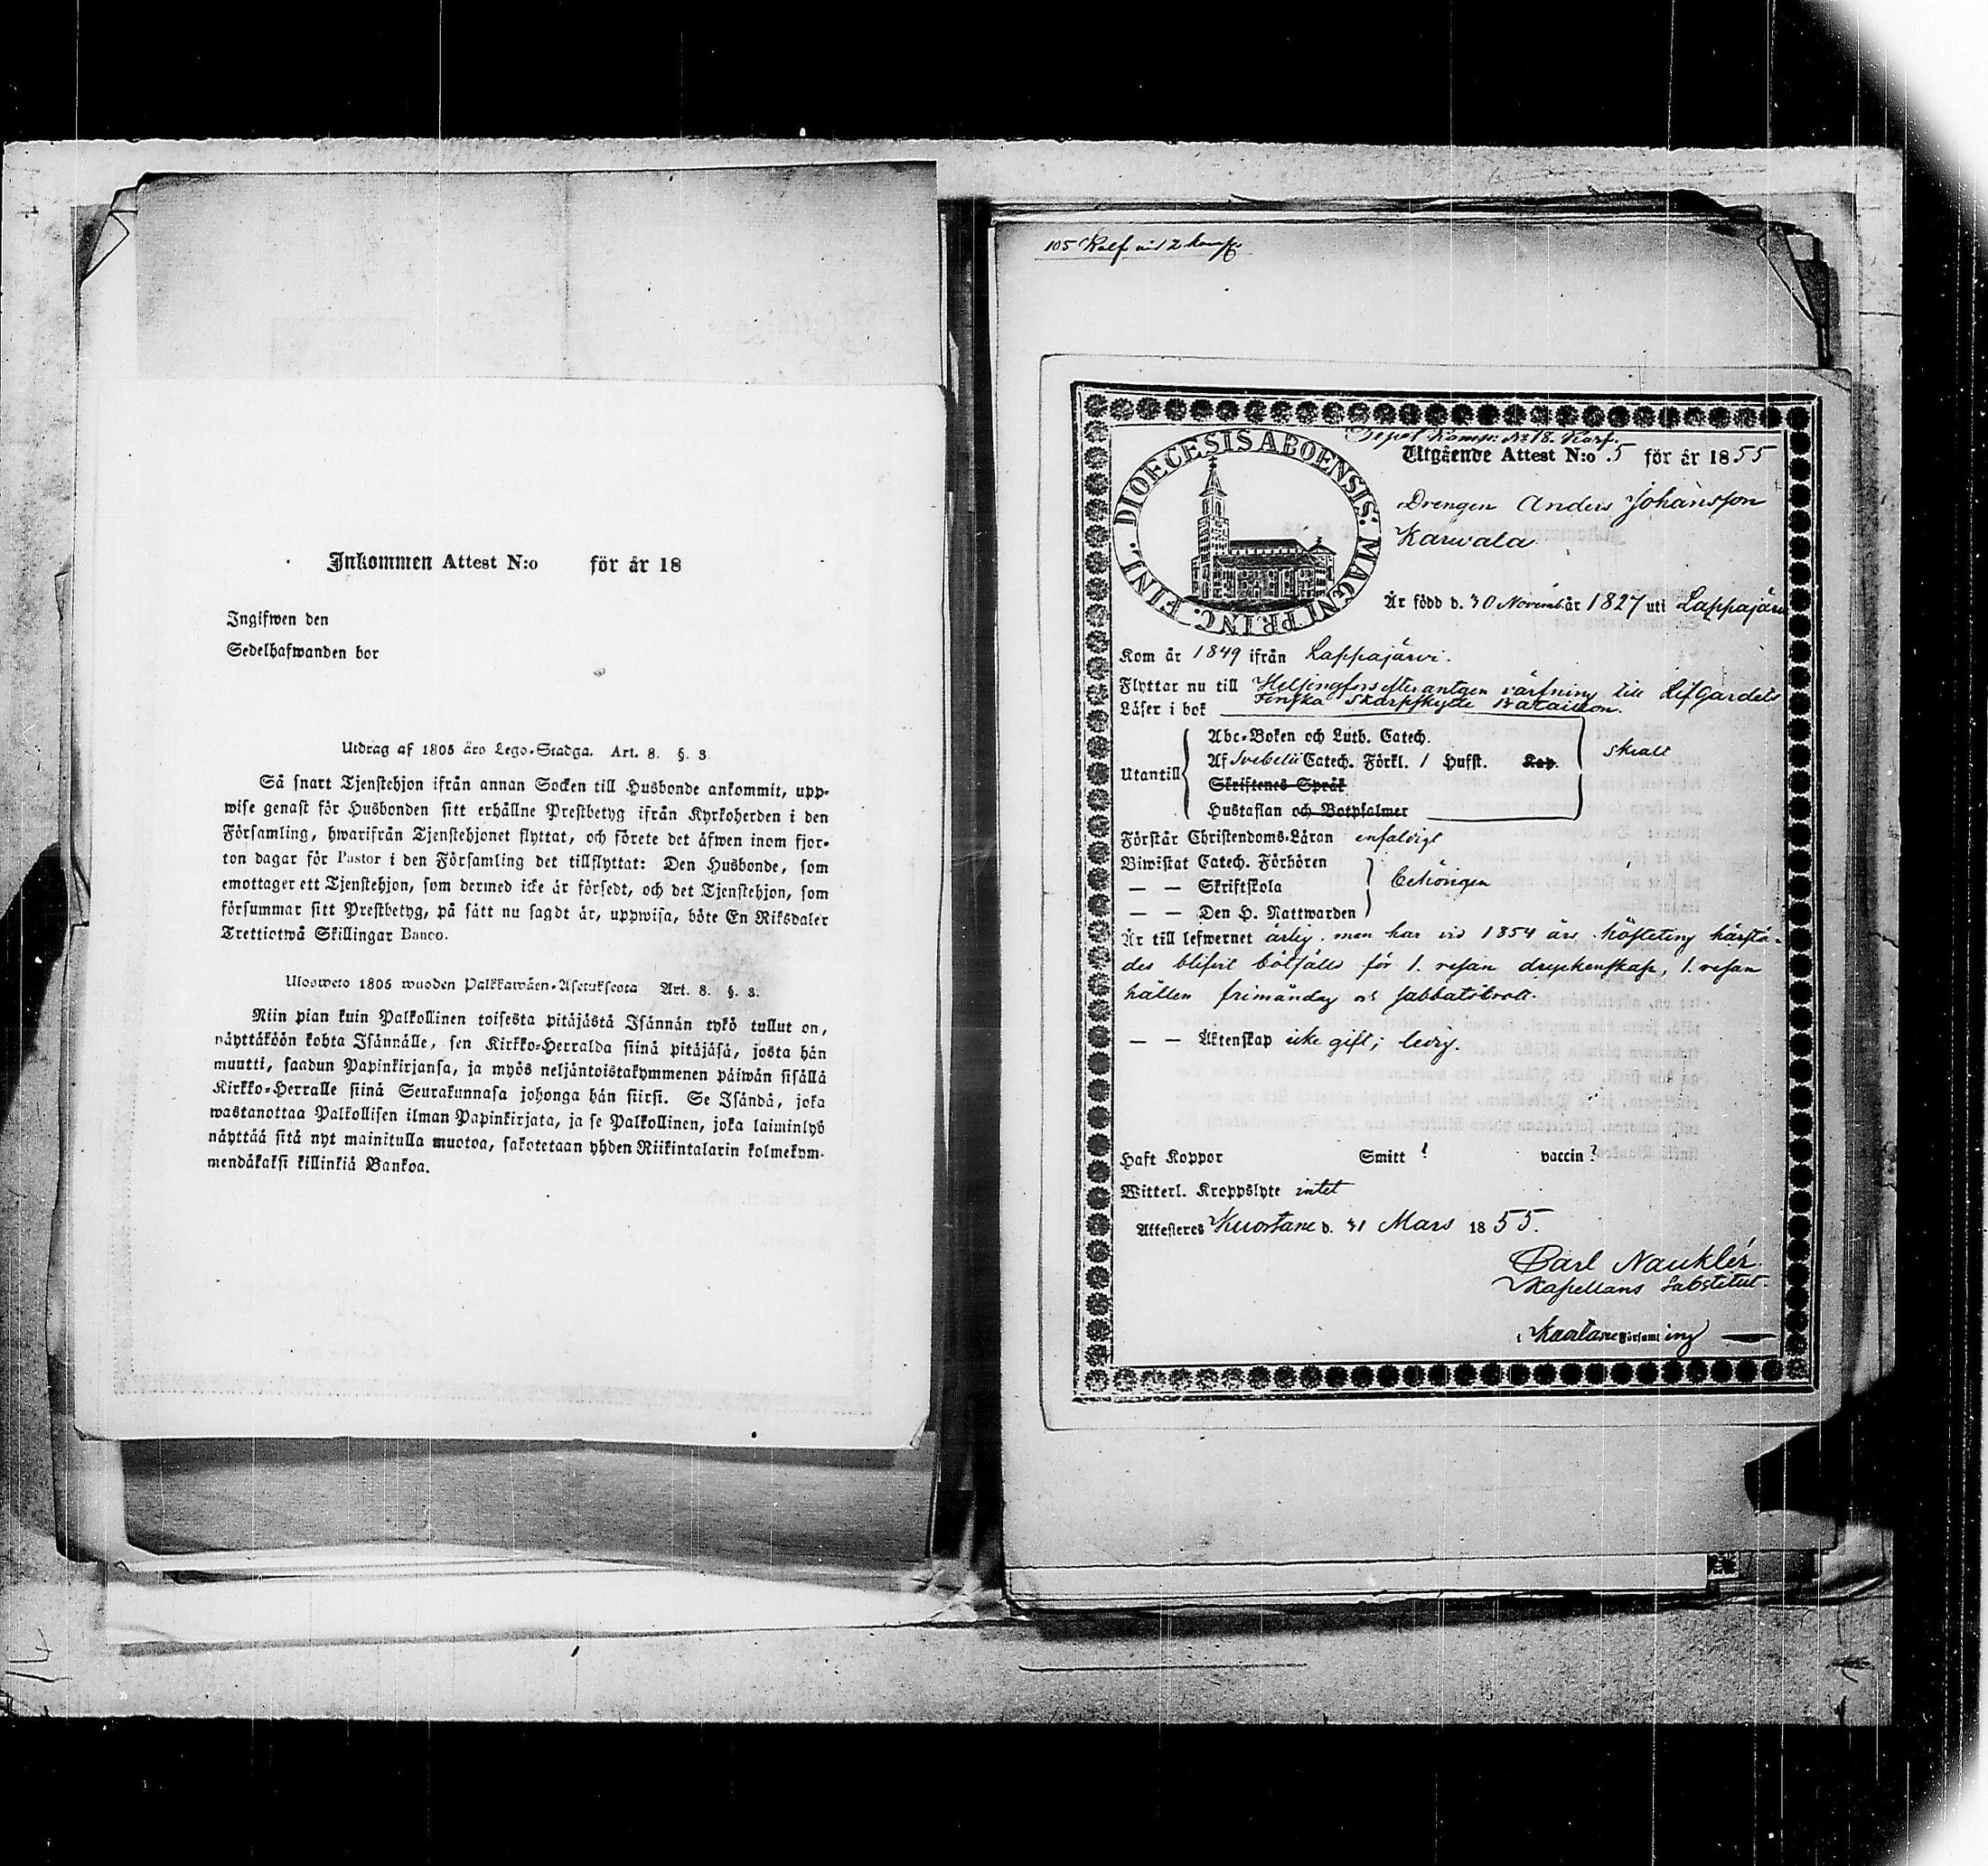 Inkommen Attest N:o för år 18
Ingifwen den
Sedelhafwanden bor
Utdrag af 1805 års Lego-Stadga. Art. 8. §. 3.
Så snart Tjenstehjon ifrån annan Socken till Husbonde ankommit, upp-
wise genast för Husbonden sitt erhållne Prestbetyg ifrån Kyrkoherden i den
Församling, hwarifrån Tjenstehjonet flyttat, och förete det äfwen inom fjor-
ton dagar för Pastor i den Församling det tillflyttat: Den Husbonde, som
emottager ett Tjenstehjon, som dermed icke är försedt, och det Tjenstehjon, som
försummar sitt Prestbetyg, på sätt nu sagdt är, uppwisa, böte En Riksdaler
Trettiotwå Skillingar Banco.
Ulosweto 1805 wuoden Palkkawäen-Asetuksesta Art. 8. §. 3.
Niin pian kuin Palkollinen toisesta pitäjästä Isännän tykö tullut on,
näyttäköön kohta Isännälle, sen Kirkko-Herralda siinä pitäjäsä, josta hän
muutti, saadun Papinkirjansa, ja myös neljäntoistakymmenen päiwän sisällä
Kirkko-Herralle siinä Seurakunnasa johonga hän siirsi. Se Isändä, joka
wastanottaa Palkollisen ilman Papinkirjata, ja se Palkollinen, joka laiminlyö
näyttää sitä nyt mainitulla muotoa, sakotetaan yhden Riikintalarin kolmekym-
mendäkaksi killinkiä Bankoa.
105
DIOECESIS ABOENSIS: MAGNI PRINC. FINL.
Depot Komp: No 18. Karf.
Utgående Attest N:o 5 för år 1855
Drengen Anders Johansson
Karwala
Är född d. 30 Novemb. år 1827 uti Lappajärvi
Kom år 1849 ifrån Lappajärvi.
Flyttar nu till Helsingfors efter antagen värfning till Lifgardets
Finska Skarpskytte Bataillon.
Läser i bok
Utantill
Abc-Boken och Luth. Catech.
Af Svebelii Catech. Förkl. 1 Hufst. Kap.
Skriftenes Språk
Hustaflan och Botpsalmer
skralt
Förstår Christendoms-Läran enfaldigt
Biwistat Catech. Förhören
— — Skriftskola
— — Den H. Nattwarden
behörigen
Är till lefwernet ärlig, men har vid 1854 års hösteting härstä-
des blifvit bötfälld för 1. resan dryckenskap, 1. resan
hållen frimåndag och sabbatsbrott.
— — Äktenskap icke gift; ledig.
Haft Koppor Smitt ? vaccin ?
Witterl. Kroppslyte intet
Attesteres Kuortane d. 31 Mars 1855.
Carl Nauklér
Kapellans Substitut.
i Kuortane Församling